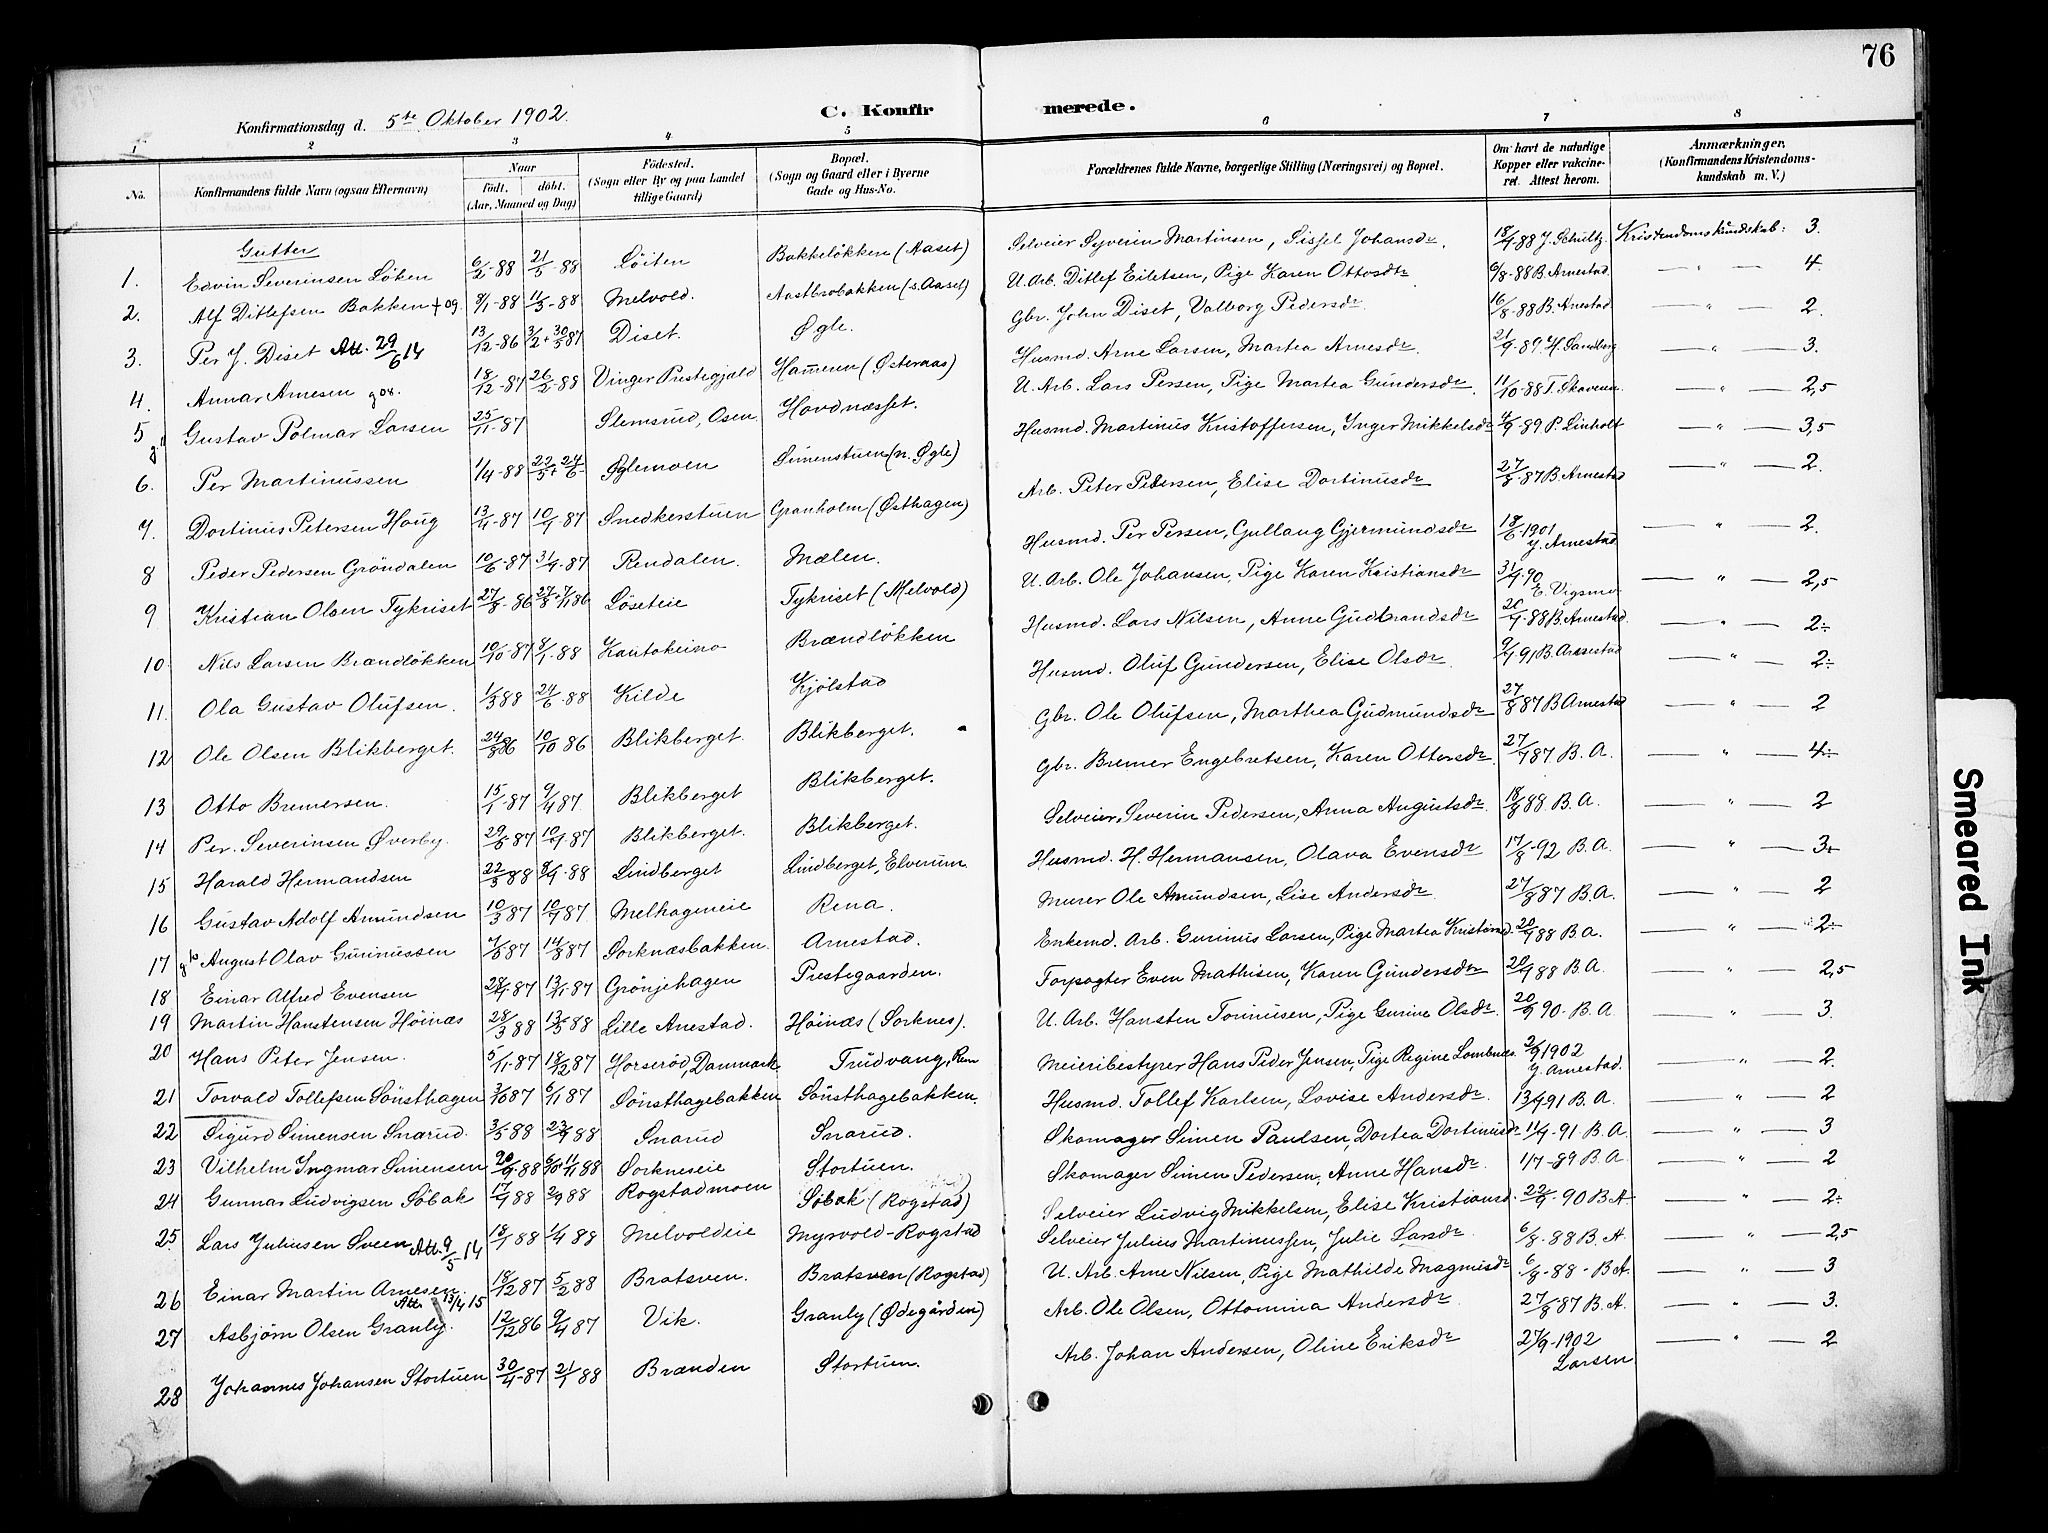 76
Konfirmationsdag d. 5te Oktober 1902.
C. Konfirmerede.
1 2 3 4 5 6 7 8
No. Konfirmandens fulde Navn (ogsaa Efternavn) Naar født. døbt. (Aar, Maaned og Dag) Fødested. (Sogn eller By og paa Landet tillige Gaard) Bopæl. (Sogn og Gaard eller i Byerne Gade og Hus-No. Forældrenes fulde Navne, borgerlige Stilling (Næringsvei) og Bopæl. Om havt de naturlige Kopper eller vakcineret. Attest herom. Anmærkninger. (Konfirmandens Kristendomskundskab m. V.)
Gutter
1. Edvin Severinsen Løken 6/2-88 21/5-88 Løiten Bakkeløkken (Aaset) Selveier Syverin Martinsen, Sissel Johansdr. 18/9-88 J. Schultz. Kristendomskundskab: 3.
2. Alf Ditlefsen Bakken + og 8/1-88 11/3-88 Melvold. Aastbrobakken (s. Aaset) U. Arb. Ditlef Eiletsen, Pige Karen Ottosdr 6/8-88 B. Arnestad — " — 4.
3. Per J. Diset Att. 29/6 14 13/12-86 3/2 + 30/5 87 Diset. Øgle. Gbr. John Diset, Valborg Pedersdr. 16/8-88 B. Arnestad — " — 2.
4. Annar Arnesen 18/12-87 26/2-88 Vinger Prestegjæld Hameren (Østeraas) Husmd. Arne Larsen, Martea Arnesdr. 21/9-89. H. Sandberg — " — 3.
5 Gustav Polmar Larsen 25/11-87 Slemsrud, Osen Hovdnæsset. U. Arb. Lars Persen, Pige Martea Gundersdr. 11/10-88 T. Skaveren — " — 2,5
6. Per Martinussen 1/4-88 22/5 + 24/6- Øglemoen Simenstuen (n. Øgle) Husmd. Martinus Kristoffersen, Inger Mikkelsdr 4/9-89 P. Linholt — " — 3,5
7. Dortinus Petersen Haug 13/4-87 10/7-87 Snedkerstuen Granholm (Østhagen) Arb. Peter Pedersen, Elise Dortinusdr 27/8-87 B. Arnestad — " — 2.
8 Peder Pedersen Grøndalen 10/6-87 31/7-87 Rendalen. Mælen. Husmd. Per Persen, Gullaug Gjermundsdr 18/6-1901 J. Arnestad — " — 2.
9 Kristian Olsen Tykriset 27/8-86 27/8 - 7/11 86 Løseteie Tykriset (Melvold) U. Arb. Ole Johansen, Pige Karen Kristiansdr 31/7-90 E. Vigsmo — " — 2,5
10. Nils Larsen Brændløkken 10/10-87 8/1-88 Kautokeino Brændløkken Husmd. Lars Nilsen, Anne Gudbrandsdr 20/7-88 B. Arnestad — " — 2÷
11. Ola Gustav Olufsen. 1/3 88 24/6-88 Kilde Kjølstad Husmd. Oluf Gundersen, Elise Olsdr. 9/7 91 B. Arnestad — " — 2÷
12 Ole Olsen Blikberget. 24/8 86 10/10 86 Blikberget. Blikberget. Gbr. Ole Olufsen, Marthea Gudmundsdr 27/8 87 B Arnestad — " — 2
13 Otto Bremersen. 15/1-87 9/4 87. Blikberget Blikberget. Gbr. Bremer Engebretsen, Karen Ottersdr. 27/7 87 B. A. — " — 4÷
14 Per. Severinsen Øverby. 29/5 87 10/7-87 Blikberget. Blikberget. Selveier, Severin Pedersen, Anna Augustsdr. 18/8 88 B. A. — " — 2
15 Harald Hermandsen 22/3 88 8/7-88 Lindberget Lindberget, Elverum Husmd. H. Hermansen, Olava Evensdr 17/8-92 B. A. — " — 3÷
16 Gustav Adolf Amundsen 10/3 87 10/7 87 Melhageneie Rena. Murer Ole Amundsen, Lise Andersdr. 27/8 87 B. A. — " — 2
17 August Olav Gurinussen 7/5 87 14/8 87 Sorknæsbakken. Arnestad. Enkemd. Arb. Gurinus Larsen, Pige Martea Kristiansd. 20/7 88 B. A. — " — 2÷
18 Einar Alfred Evensen 28/7-87 13/11-87 Grønjehagen Prestegaarden. Forpagter Even Mathisen, Karen Gundersdr 20/7 88 B. A. — " — 2,5
19 Martin Hanstensen Høinæs 28/3 88 13/5 88 Lille Arnestad. Høinæs (Sorknes). U. Arb. Hansten Torinusen, Pige Gurine Olsdr. 20/9 90- B. A. — " — 3.
20 Hans Peter Jensen. 5/11-87 18/12 87 Horserød, Danmark Trudvang, Rena Meieribestyrer Hans Peder Jensen, Pige Regine Lombnæs. 2/9 1902 J. Arnestad. — " — 2.
21 Torvald Tollefsen Sønsthagen 3/10 87 6/11 87 Sønsthagebakken Sønsthagebakken. Husmd. Tollef Karlsen, Lovise Andersdr. 13/7 91 B. A. — " — 2
22 Sigurd Simensen Snarud. 3/5-88 23/9 88 Snarud Snarud. Skomager Simen Paulsen, Dortea Dortinusdr 11/7-91 B. A. — " — 3
23 Vilhelm Ingmar Simensen 20/9-88 6/10 11/11 88 Sorkneseie Stortuen. Skomager Simen Pedersen, Anne Hansdr. 1/7-89 B. A. — " — 2
24 Gunnar Ludvigsen Søbak 17/7 88 2/9 88 Rogstadmoen Søbak (Rogstad) Selveier Ludvig Mikkelsen, Elise Kristiansd. 22/9-90 B. A. — " — 2÷
25. Lars Juliusen Sveen Att. 9/5-14 18/1 88 1/4 88 Melvoldeie Myrvold-Rogstad Selveier Julius Martinussen, Julie Larsdr. 6/8-88 B. A. — " — 2,5
26 Einar Martin Arnesen 18/12 87 5/2 88 Bratsven. Bratsven (Rogstad) U. Arb. Arne Nilsen, Pige Mathilde Magnusdr 6/8-88- B A. — " — 3
27 Asbjørn Olsen Granly. Att. 13/4 15 12/12 86 9/4 87 Vik. Granly (Ødegården) Arb. Ole Olsen, Ottomina Andersdr. 27/8 87 B. A. — " — 3.
28 Johannes Johansen Stortuen 30/4-87 21/1 88 Brænden Stortuen. Arb. Johan Andersen, Oline Eriksdr 27/9-1902 Larsen — " — 2
Smeared Ink